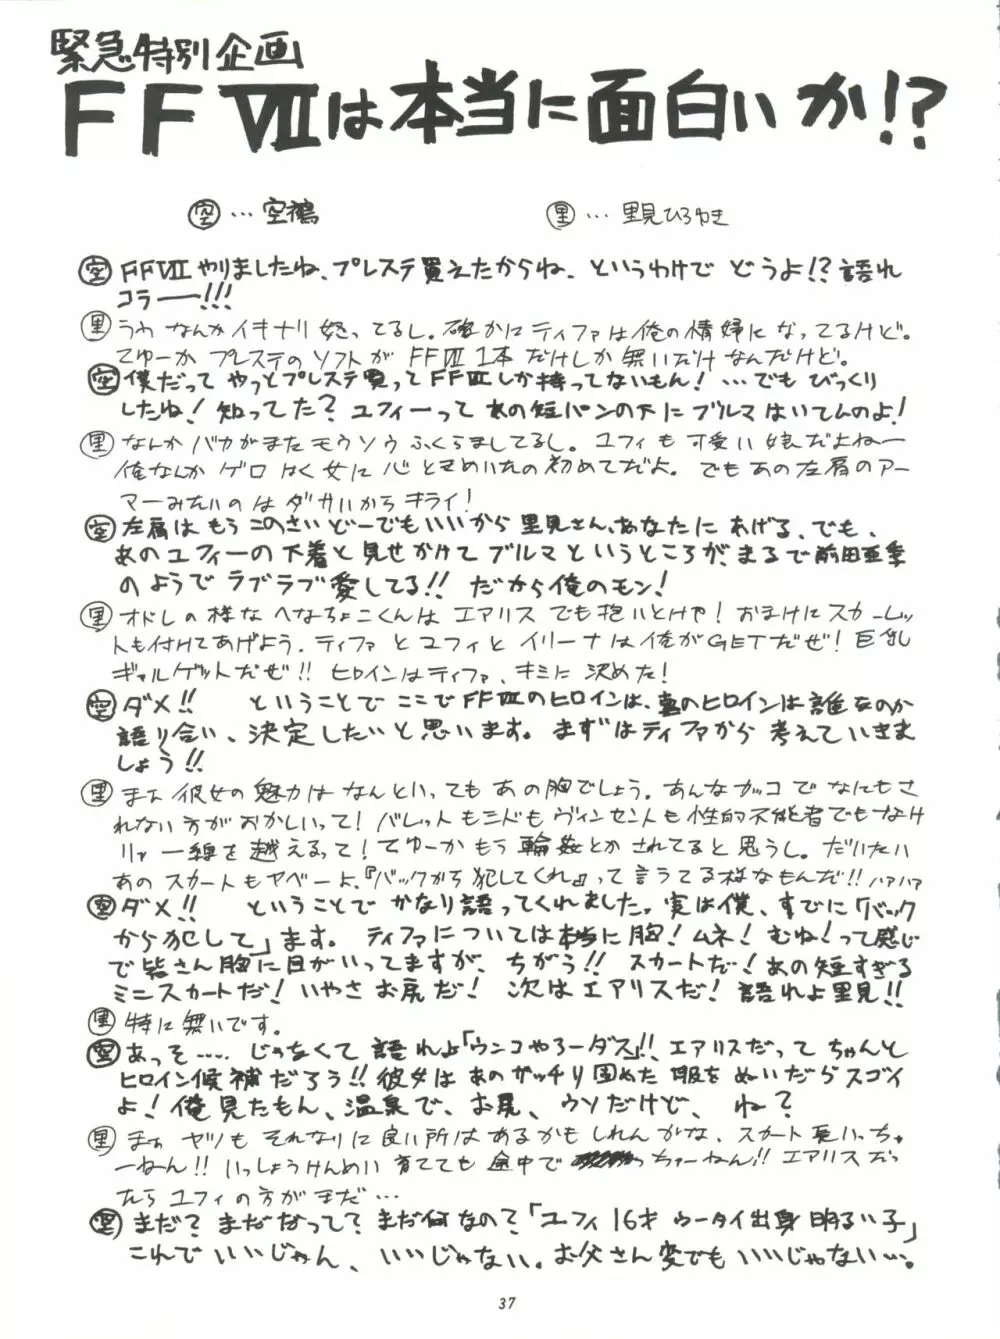 緊急特別企画
FFⅦは本当に面白いか!?
空…空鵺
里…里見ひろゆき
空 FFⅦやりましたね、プレステ買えたからね、というわけで どうよ!? 語れ
コラーー!!!
里 うわ なんかイキナリ怒ってるし。確かにティファは俺の情婦になってるけど。
てゆーか プレステのソフトが FFⅦ 1本 だけしか 無いだけなんだけど。
空 僕だって やっとプレステ買ってFFⅦしか持ってないもん! …でも びっくり
したね! 知ってた? ユフィーって あの短パンの下に ブルマはいてんのよ!
里 なんか バカがまた モウソウ ふくらましてるし。ユフィも可愛い娘だよねー
俺なんか ゲロ はく女に 心ときめいたの初めてだよ。でもあの左肩のアー
マーみたいのは ダサいからキライ!
空 左肩は もう このさい どーでもいいから 里見さん、あなたに あげる、でも、
あのユフィーの下着と見せかけて ブルマ というところが、まるで前田亜季
のようで ラブラブ愛してる!! だから俺のモン!
里 オドレの様な へなちょこくんは エアリス でも抱いとけや! おまけにスカーレッ
トも付けてあげよう。ティファ と ユフィと イリーナは俺がGETだぜ! 巨乳
ギャルゲットだぜ!! ヒロインはティファ、キミに 決めた!
空 ダメ!! ということで ここでFFⅦのヒロインは、真のヒロインは誰なのか
語り合い、決定したいと思います。まずはティファから 考えていきま
しょう!!
里 まぁ 彼女の魅力は なんといっても あの胸でしょう。あんなカッコで なにもさ
れない方がおかしいって! バレットもシドも ヴィンセントも性的不能者でもなけ
りゃ 一線を越えるって! てゆーかもう 輪姦とか されてると思うし。だいたい
あの スカートもヤベーよ、『バックから犯してくれ』って言うてる様なもんだ!! ハァハァ
空 ダメ!! ということで かなり語ってくれました。実は僕、すでに「バック
から犯して」ます。ティファについては本当に胸! ムネ! むね! って感じ
で 皆さん胸に目がいってますが、ちがう!! スカートだ! あの短すぎる
ミニスカートだ! いやさ お尻だ! 次はエアリスだ! 語れよ里見!!
里 特に無いです。
空 あっそ…… じゃなくて 語れよ「ウンコやろーダス」!! エアリスだって ちゃんと
ヒロイン候補だろう!! 彼女は あのガッチリ固めた 服をぬいだらスゴイ
よ! 俺見たもん、温泉で、お尻、ウソだけど、ね?
里 まぁ ヤツも それなりに良い所は あるかもしれんがな、スカート長いっちゃ
ーねん!! いっしょうけんめい 育てても 途中で っちゃーねん!! エアリスだっ
たら ユフィの方がまだ…
空 まだ? まだなって? まだ何なの? 「ユフィ 16才 ウータイ出身 明るい子」
これで いいじゃん、いいじゃない。お父さん変でも いいじゃない…。
37